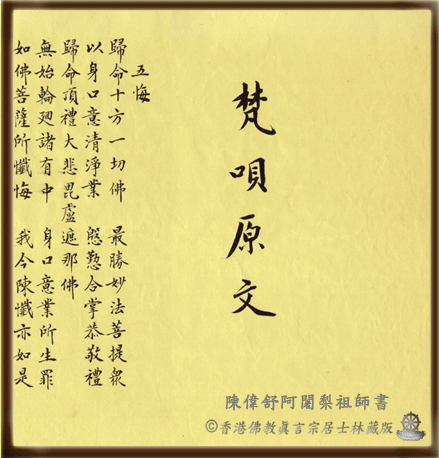 梵唄原文
五悔
歸命十方一切佛 最勝妙法菩提眾
以身口意清淨業 慇懃合掌恭敬禮
歸命頂禮大悲毘盧遮那佛
無始輪廻諸有中 身口意業所生罪
如佛菩薩所懺悔 我今陳懺亦如是
陳偉舒阿闍梨祖師書
©香港佛教真言宗居士林藏版